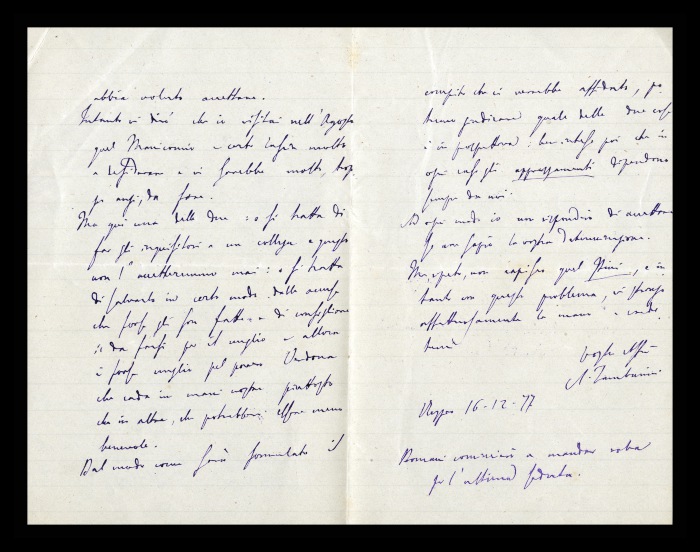 abbia voluto accettare.
Intanto vi dirò che io visitai nell'Agosto
quel Manicomio e certo lascia molto
a desiderare e vi sarebbe molto, trop
po anzi, da fare.
Ma qui una delle due: o si tratta di
far gli inquisitori a un collega e questo
non l'accetteremmo mai: o si tratta
di salvarlo in certo modo dalle accuse
che forse gli son fatte e di consigliare
il da farsi per il meglio e allora
è forse meglio pel povero
che cada in mani nostre piuttosto
che in altre, che potrebbero essere meno
benevole.
Dal modo come sarà formulato il
compito che ci verrebbe affidato, po
tremo giudicare quale delle due cose
è in prospettiva: ben inteso poi che in
ogni caso gli apprezzamenti dipendono
sempre da noi.
Ad ogni modo io non risponderò di accettare
se non saprò la vostra determinazione.
Ma, ripeto, non capisco quel, e in
tanto con questo problema, vi stringo
affettuosamente la mano e vado
Vostro Aff.
A. Tamburini
Reggio 16-12-77
Romani cominciò a mandar roba
per l'ultima seduta.